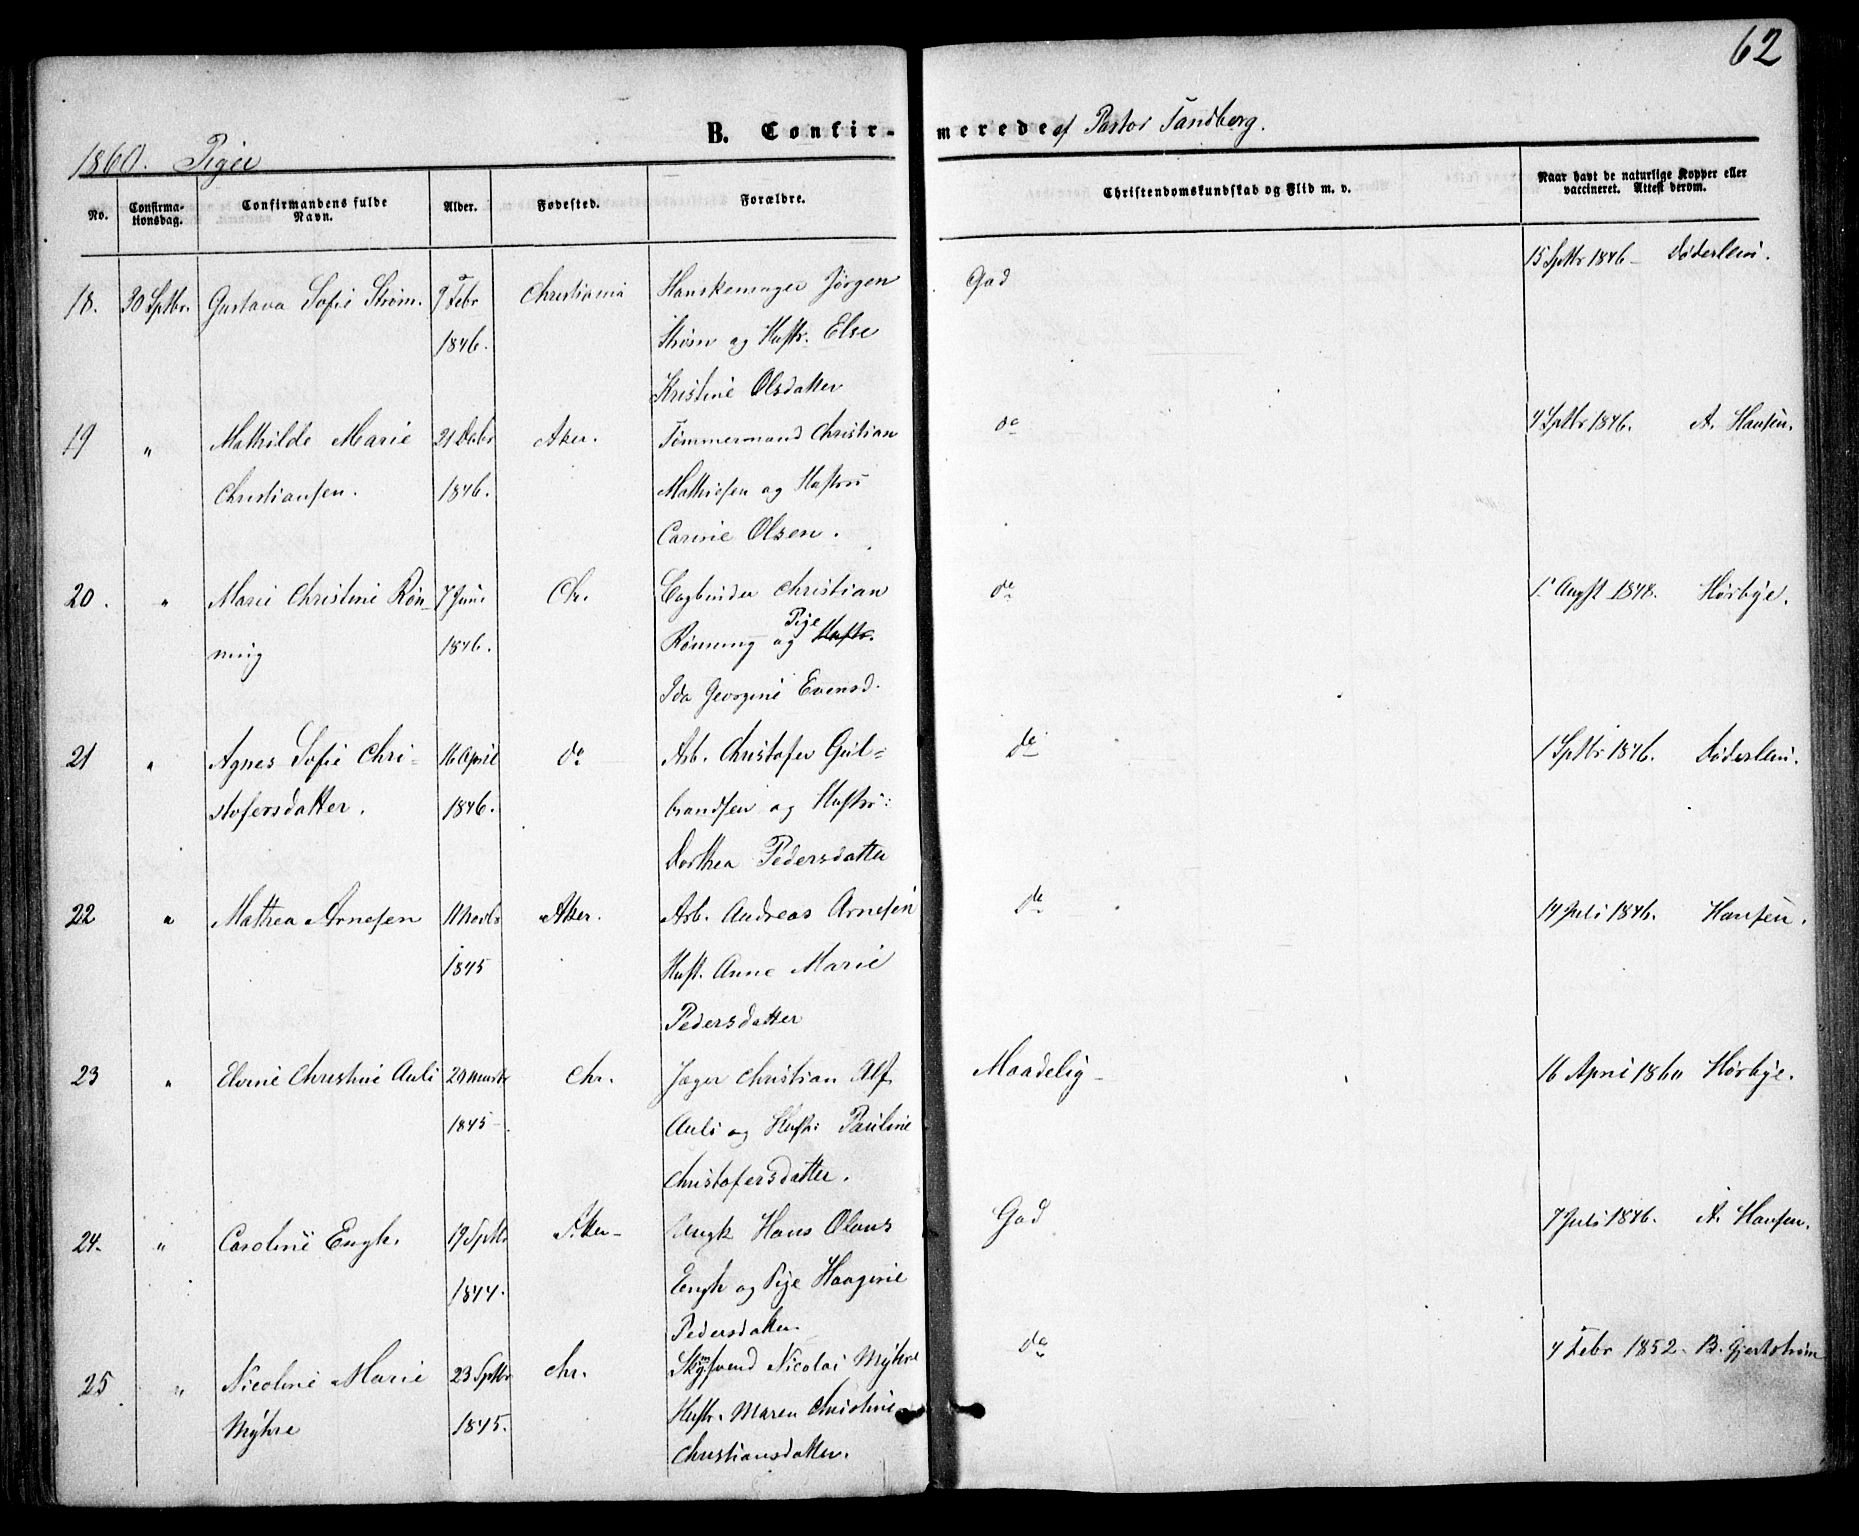 62
B. Confirmerede af Pastor Tandberg.
1860. Piger
No. Confirmationsdag. Confirmandens fulde Navn. Alder. Fødested. Forældre. Christendomskundskab og Flid m. v. Naar havt de naturlige Kopper eller vaccineret. Attest derom.
18. 30 Sptbr. Gustava Sofie Strøm. 9 Febr Christiania Hanskemager Jörgen God 15 Sptbr 1846 - Döderlein.
1846. Strøm og Hustr. Else
Kristine Olsdatter
19 " Mathilde Marie 21 Aker. Tömmermand Christian do 4 Sptbr 1846. A. Hansen.
Christiansen. 1846. Mathiesen og Hustru
Carine Olsen.
20. " Marie Christine Røn- 7 Juni Chr. Bogbinder Christian do 1 August 1848. Hörbye.
ning 1846. Rønning og Pige Hustr.
Ida Georgine Evensd.
21 " Agnes Sofie Chri- 16 April do Arb. Christofer Gul- do 1 Sptbr 1846. Döderlein.
stofersdatter. 1846. brandsen og Hustru:
Dorthea Pedersdatter
22 " Mathea Arnesen 11 Novbr Aker. Arb. Andreas Arnesen do 14 Juli 1846. Hansen.
1845 Hust. Anne Marie
Pedersdatter
23 " Elvine Christine Auli 29 Chr. Jæger Christian Alf. Maadelig - 16 April 1860 Hörbye.
1845 - Auli og Hustr: Pauline
Christofersdatter.
24. " Caroline Engh. 19 Sptbr Aker - Ungk Hans Olaus God 7 Juli 1846. A. Hansen.
1844. Engh og Pige Haagine
Pedersdatter
25 " Nicoline Marie 23 Sptbr Chr. Nicolai Myhre do 4 Febr 1852. B.
Myhre 1845. Hustr. Maren Christine
Christiansdatter.